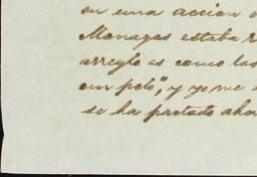 en una accion
Monagas estaba
arreglo es como las
un pelo", y yo me
se ha portado aho